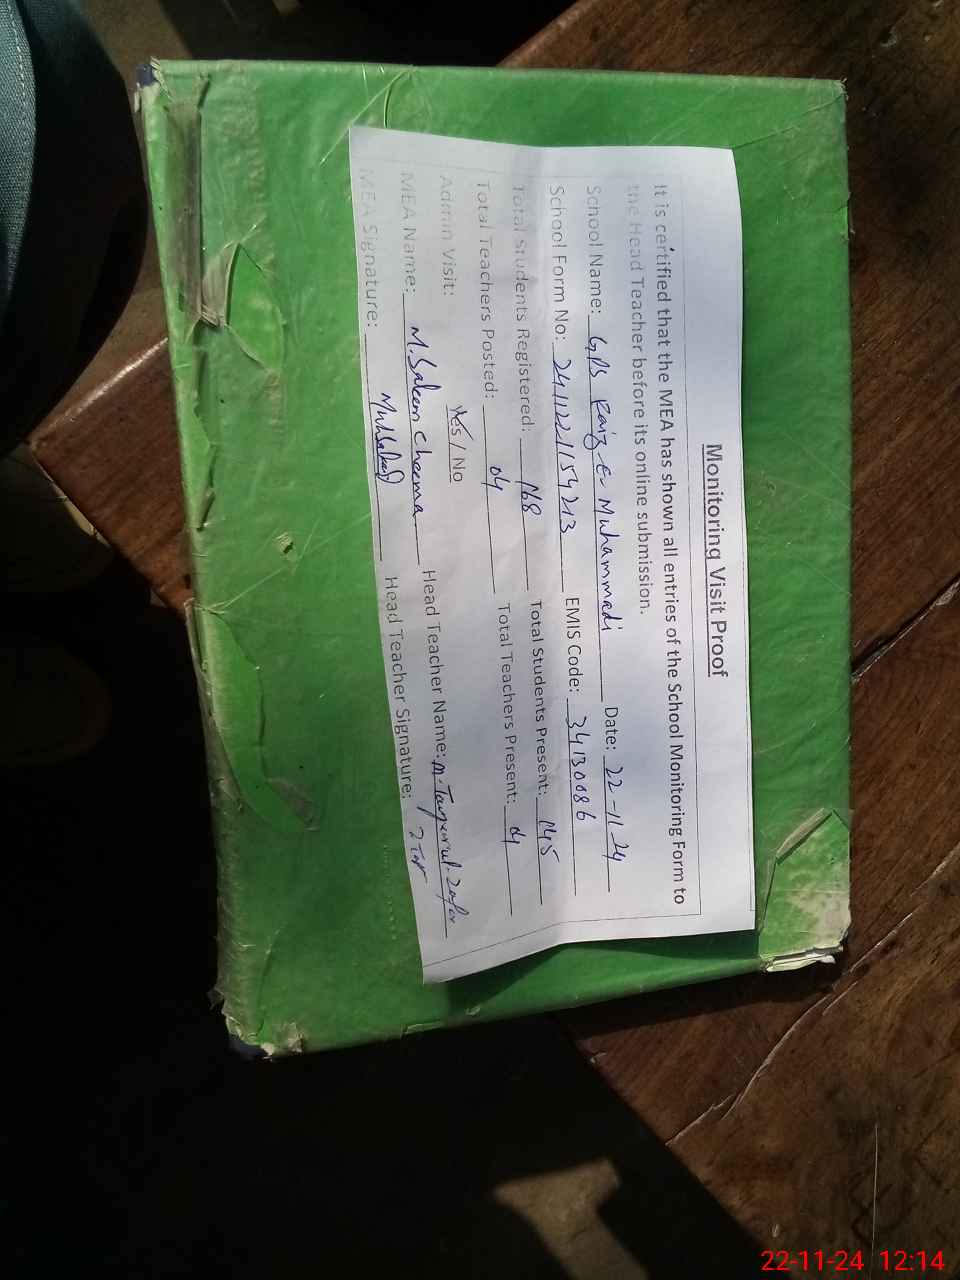 Monitoring Visit Proof
It is certified that the MEA has shown all entries of the School Monitoring Form to
the Head Teacher before its online submission.
School Name: GPS Faiz e Muhammadi Date: 22-11-24
School Form No: 241122115 EMIS Code: 34130086
Total Students Registered: 168 Total Students Present: 145
Total Teachers Posted: 04 Total Teachers Present: 04
Admin Visit: Yes / No
MEA Name: M. Saleem Cheema Head Teacher Name: M.
MEA Signature: Head Teacher Signature:
22-11-24 12:14